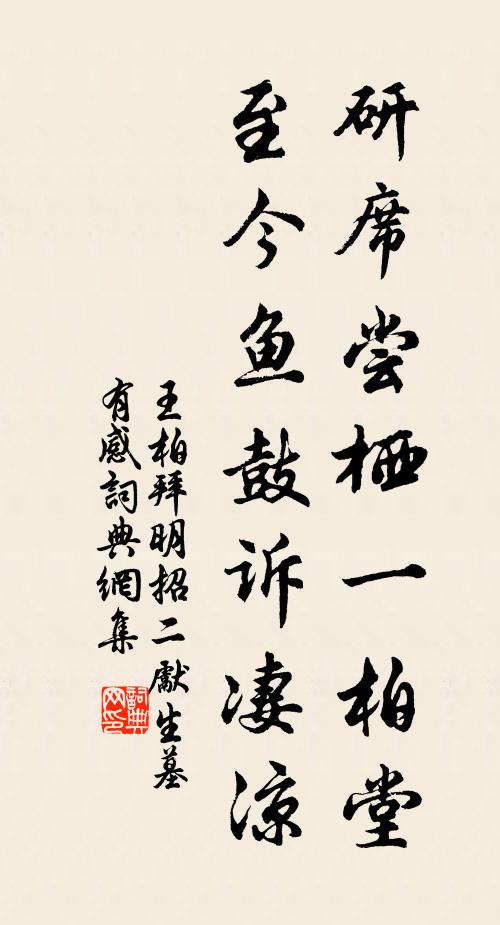 研席尝栖一柏堂
至今鱼鼓诉凄凉
王柏拜明招二獻生墓
有感詞典網集
詞典網印